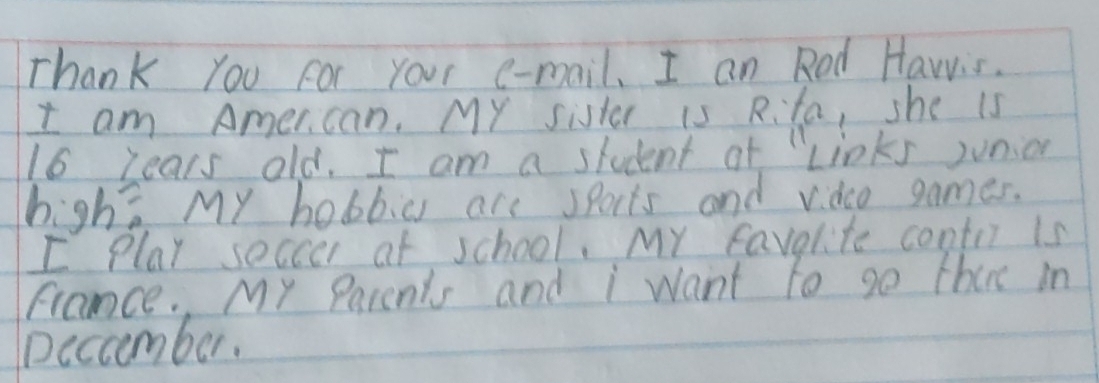 Thank You For Your e-mail. I an Rod Harris.
I am American. MY sister is Rita, she is
16 years old. I am a student at "Links junior
high". MY hobbies are sports and video games.
I Play soccer at school. MY Favolite contry is
France. MY Parents and i want to go there in
Deccember.